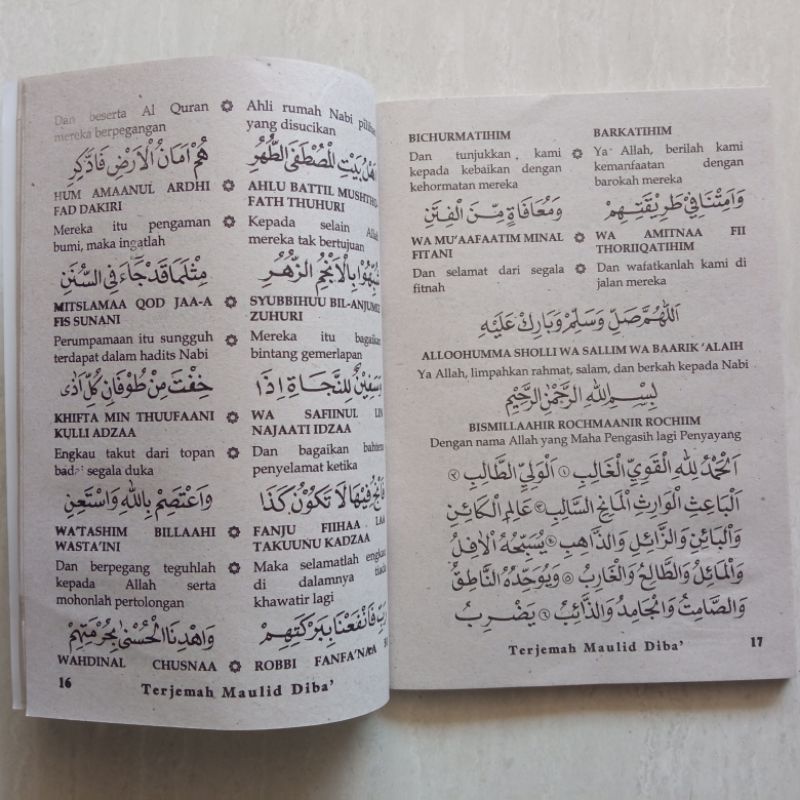 Dan beserta Al Quran ۞ Ahli rumah Nabi
mereka berpegangan yang disucikan
هُمْ اَمَانُ الْاَرْضِ فَاذَّكِرِ اَهْلُ بَيْتِ الْمُصْطَفَى الطُّهُرِ
HUM AMAANUL ARDHI ۞ AHLU BATTIL
FAD DAKIRI FATH THUHURI
Mereka itu pengaman ۞ Kepada selain
bumi, maka ingatlah mereka tak bertujuan
مِثْلَمَا قَدْ جَاءَ فِى السُّنَنِ شُبِّهُوْا بِالْاَنْجُمِ الزُّهُرِ
MITSLAMAA QOD JAA-A ۞ SYUBBIHUU BIL-ANJUMIZ
FIS SUNANI ZUHURI
Perumpamaan itu sungguh ۞ Mereka itu bagaikan
terdapat dalam hadits Nabi bintang gemerlapan
خِفْتَ مِنْ طُوْفَانِ كُلِّ اَذٰى وَسَفِيْنٌ لِلنَّجَاةِ اِذَا
KHIFTA MIN THUUFAANI ۞ WA SAFIINUL LIN
KULLI ADZAA NAJAATI IDZAA
Engkau takut dari topan ۞ Dan bagaikan
segala duka penyelamat ketika
وَاعْتَصِمْ بِاللهِ وَاسْتَعِنِ فَانْجُ فِيْهَا لَا تَكُوْنُ كَذَا
WA'TASHIM BILLAAHI ۞ FANJU FIIHAA LAA
WASTA'INI TAKUUNU KADZAA
Dan berpegang teguhlah ۞ Maka selamatlah
kepada Allah serta di dalamnya
mohonlah pertolongan khawatir lagi
وَاهْدِنَا الْحُسْنٰى بِحُرْمَتِهِمْ رَبِّ فَانْفَعْنَا بِبَرْكَتِهِمْ
WAHDINAL CHUSNAA ۞ ROBBI FANFA'NAA
16 Terjemah Maulid Diba'
BICHURMATIHIM BARKATIHIM
Dan tunjukkan kami ۞ Ya Allah, berilah kami
kepada kebaikan dengan kemanfaatan dengan
kehormatan mereka barokah mereka
وَمُعَافَاةٍ مِّنَ الْفِتَنِ وَاَمِتْنَا فِى طَرِيْقَتِهِمْ
WA MU'AAFAATIM MINAL ۞ WA AMITNAA FII
FITANI THORIIQATIHIM
Dan selamat dari segala ۞ Dan wafatkanlah kami di
fitnah jalan mereka
اَللّٰهُمَّ صَلِّ وَسَلِّمْ وَبَارِكْ عَلَيْهِ
ALLOOHUMMA SHOLLI WA SALLIM WA BAARIK 'ALAIH
Ya Allah, limpahkan rahmat, salam, dan berkah kepada Nabi
بِسْمِ اللهِ الرَّحْمٰنِ الرَّحِيْمِ
BISMILLAAHIR ROCHMAANIR ROCHIIM
Dengan nama Allah yang Maha Pengasih lagi Penyayang
اَلْحَمْدُ لِلّٰهِ الْقَوِيِّ الْغَالِبِ ۱ اَلْوَلِيِّ الطَّالِبِ ۲
اَلْبَاعِثِ الْوَارِثِ الْمَانِحِ السَّالِبِ ۳ عَالِمِ الْكَائِنِ
وَالْبَائِنِ وَالزَّائِلِ وَالذَّاهِبِ ٤ يُسَبِّحُهُ الْاٰفِلُ
وَالْمَائِلُ وَالطَّالِعُ وَالْغَارِبُ ٥ وَيُوَحِّدُهُ النَّاطِقُ
وَالصَّامِتُ وَالْجَامِدُ وَالذَّائِبُ ٦ يَضْرِبُ
Terjemah Maulid Diba' 17